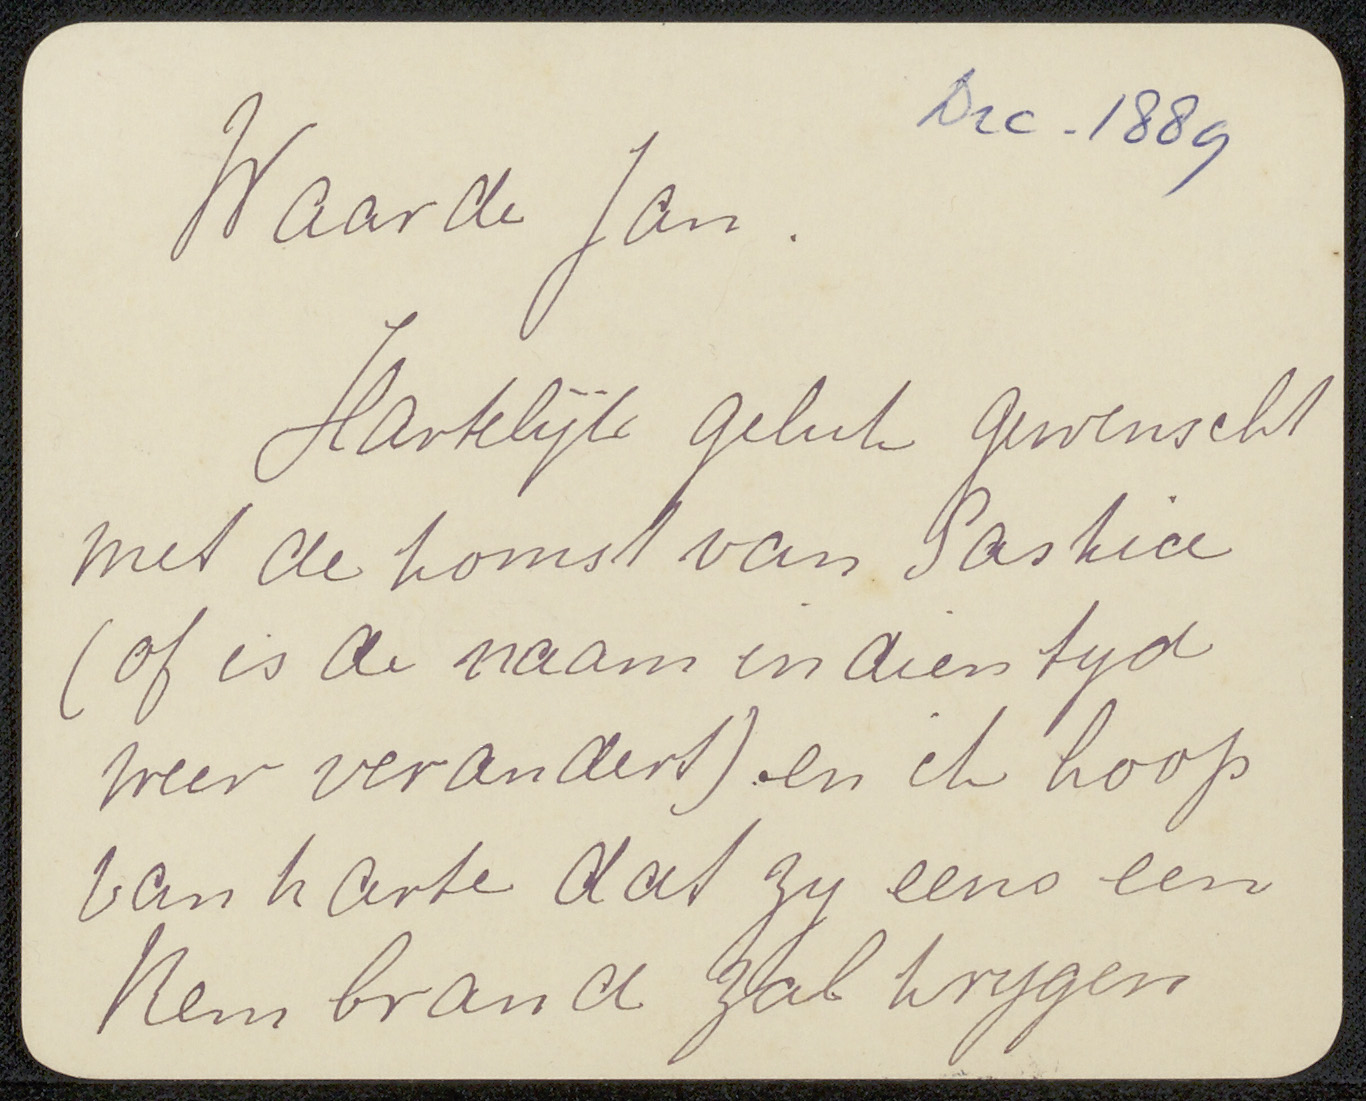 Dec. 1889
Waarde Jan.
Hartelijk geluk gewenscht
met de komst van Saskia
(of is de naam in dien tyd
weer verandert) en ik hoop
van harte dat zy eens een
Rembrand zal krygen